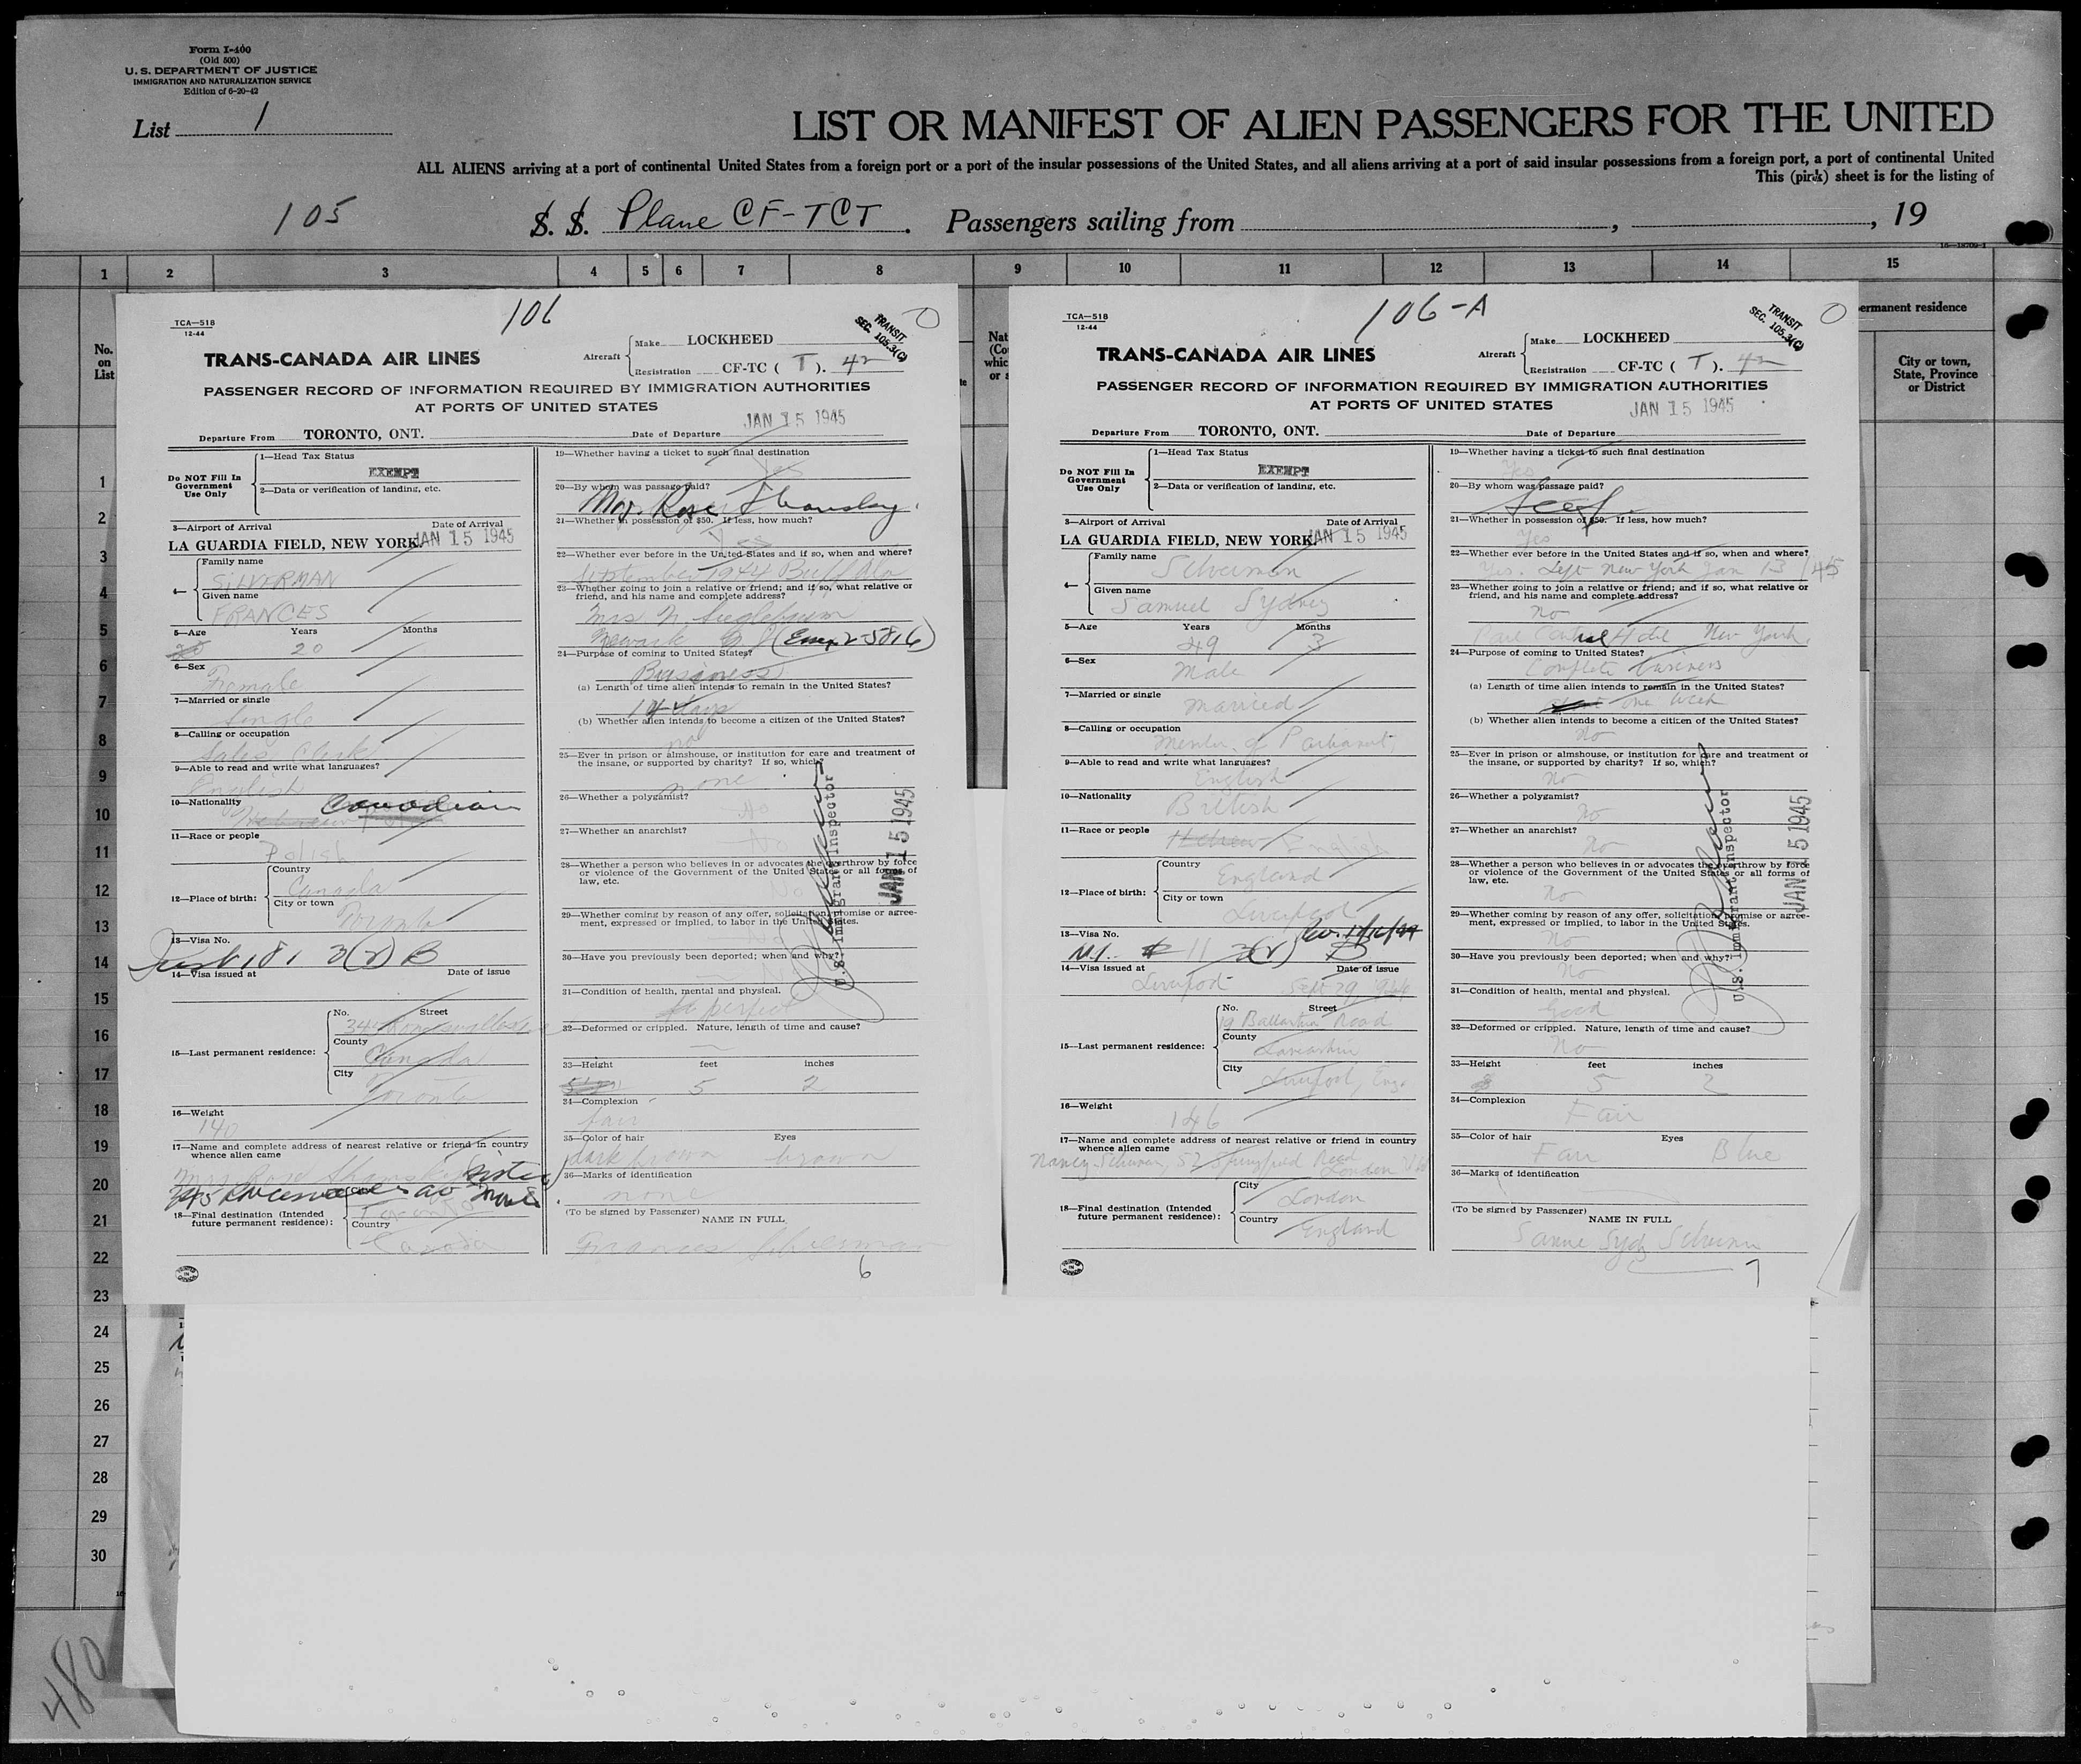 Form I-400
(Old 500)
U. S. DEPARTMENT OF JUSTICE
IMMIGRATION AND NATURALIZATION SERVICE
Edition of 6-20-42
List 1
LIST OR MANIFEST OF ALIEN PASSENGERS FOR THE UNITED
ALL ALIENS arriving at a port of continental United States from a foreign port or a port of the insular possessions of the United States, and all aliens arriving at a port of said insular possessions from a foreign port, a port of continental United
This (pink) sheet is for the listing of
105 S. S. Plane CF-TCT. Passengers sailing from , , 19
16—18709-1
1 2 3 4 5 6 7 8 9 10 11 12 13 14 15
No.
on
List
ermanent residence
City or town,
State, Province
or District
1
2
3
4
5
6
7
8
9
10
11
12
13
14
15
16
17
18
19
20
21
22
23
24
25
26
27
28
29
30
480
106
TCA—518
12-44
TRANSIT
SEC. 105.3(C)
TRANS-CANADA AIR LINES
Aircraft
Make LOCKHEED
Registration CF-TC ( T ). 42
PASSENGER RECORD OF INFORMATION REQUIRED BY IMMIGRATION AUTHORITIES
AT PORTS OF UNITED STATES
JAN 15 1945
Departure From TORONTO, ONT. Date of Departure
Do NOT Fill In
Government
Use Only
1—Head Tax Status
EXEMPT
2—Data or verification of landing, etc.
3—Airport of Arrival Date of Arrival
LA GUARDIA FIELD, NEW YORK. JAN 15 1945
4—
Family name
SILVERMAN
Given name
FRANCES
5—Age Years Months
20
6—Sex
Female
7—Married or single
Single
8—Calling or occupation
Sales Clerk
9—Able to read and write what languages?
English
10—Nationality Canadian
11—Race or people
Polish
12—Place of birth:
Country
Canada
City or town
Toronto
13—Visa No.
181 3(2) B
14—Visa issued at Date of issue
15—Last permanent residence:
No. Street
County
Canada
City
Toronto
16—Weight
140
17—Name and complete address of nearest relative or friend in country
whence alien came
sister
18—Final destination (Intended
future permanent residence):
City
Toronto
Country
Canada
19—Whether having a ticket to such final destination
Yes
20—By whom was passage paid?
21—Whether in possession of $50. If less, how much?
Yes
22—Whether ever before in the United States and if so, when and where?
September 1944 Buffalo
23—Whether going to join a relative or friend; and if so, what relative or
friend, and his name and complete address?
Mrs N.
Newark
24—Purpose of coming to United States?
Business
(a) Length of time alien intends to remain in the United States?
14 days
(b) Whether alien intends to become a citizen of the United States?
no
25—Ever in prison or almshouse, or institution for care and treatment of
the insane, or supported by charity? If so, which?
none
26—Whether a polygamist?
No
27—Whether an anarchist?
No
28—Whether a person who believes in or advocates the overthrow by force
or violence of the Government of the United States or all forms of
law, etc.
No
29—Whether coming by reason of any offer, solicitation, promise or agree-
ment, expressed or implied, to labor in the United States.
No
30—Have you previously been deported; when and why?
No
31—Condition of health, mental and physical.
perfect
32—Deformed or crippled. Nature, length of time and cause?
33—Height feet inches
5 2
34—Complexion
fair
35—Color of hair Eyes
dark brown brown
36—Marks of identification
none
(To be signed by Passenger)
NAME IN FULL
Frances Silverman
6
U.S. Immigrant Inspector
JAN 15 1945
106-A
TCA—518
12-44
TRANSIT
SEC. 105.3(C)
TRANS-CANADA AIR LINES
Aircraft
Make LOCKHEED
Registration CF-TC ( T ). 42
PASSENGER RECORD OF INFORMATION REQUIRED BY IMMIGRATION AUTHORITIES
AT PORTS OF UNITED STATES
JAN 15 1945
Departure From TORONTO, ONT. Date of Departure
Do NOT Fill In
Government
Use Only
1—Head Tax Status
EXEMPT
2—Data or verification of landing, etc.
3—Airport of Arrival Date of Arrival
LA GUARDIA FIELD, NEW YORK. JAN 15 1945
4—
Family name
Silverman
Given name
Samuel Sydney
5—Age Years Months
49 3
6—Sex
Male
7—Married or single
Married
8—Calling or occupation
Member of Parliament
9—Able to read and write what languages?
English
10—Nationality
British
11—Race or people Hebrew English
12—Place of birth:
Country
England
City or town
Liverpool
13—Visa No.
11 3(2) B
14—Visa issued at Date of issue
Liverpool Sept 29 1944
15—Last permanent residence:
No. Street
19 Road
County
Lancashire
City
Liverpool, Eng.
16—Weight
146
17—Name and complete address of nearest relative or friend in country
whence alien came
Nancy Silverman, 52 Springfield Road London
18—Final destination (Intended
future permanent residence):
City
London
Country
England
19—Whether having a ticket to such final destination
Yes
20—By whom was passage paid?
Self
21—Whether in possession of $50. If less, how much?
Yes
22—Whether ever before in the United States and if so, when and where?
Yes. Left New York Jan 13/45
23—Whether going to join a relative or friend; and if so, what relative or
friend, and his name and complete address?
No
Park Central Hotel New York.
24—Purpose of coming to United States?
Complete business
(a) Length of time alien intends to remain in the United States?
one week
(b) Whether alien intends to become a citizen of the United States?
No
25—Ever in prison or almshouse, or institution for care and treatment of
the insane, or supported by charity? If so, which?
No
26—Whether a polygamist?
No
27—Whether an anarchist?
No
28—Whether a person who believes in or advocates the overthrow by force
or violence of the Government of the United States or all forms of
law, etc.
No
29—Whether coming by reason of any offer, solicitation, promise or agree-
ment, expressed or implied, to labor in the United States.
No
30—Have you previously been deported; when and why?
No
31—Condition of health, mental and physical.
Good
32—Deformed or crippled. Nature, length of time and cause?
No
33—Height feet inches
5 2
34—Complexion
Fair
35—Color of hair Eyes
Fair Blue
36—Marks of identification
(To be signed by Passenger)
NAME IN FULL
7
U.S. Immigrant Inspector
JAN 15 1945